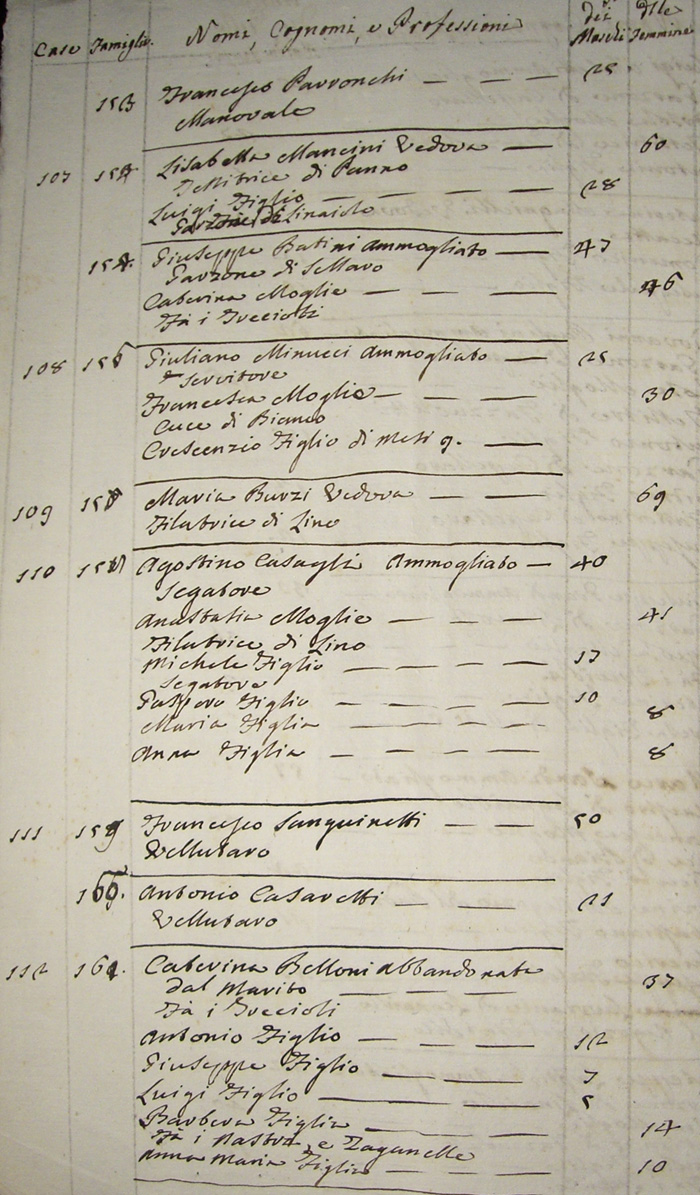 Case Famiglie. Nomi, Cognomi, e Professioni dei Maschi dlle Femmine
153 Francesco Parronchi — — — 25
Manovale
107 154 Lisabetta Mancini Vedova — 60
Tessitrice di Panno
Luigi Figlio — — — — 28
Garzone di Linaiolo
154. Giuseppe Batini Ammogliato — 47
Garzone di Sellaro
Caterina Moglie — — — — 46
Fà i Treccioli
108 156 Giuliano Minucci Ammogliato — 25
Servitore
Francesca Moglie — — — — 30
Cuce di Bianco
Crescenzio Figlio di Mesi 9. —
109 Maria Burzi Vedova — — 69
Filatrice di Lino
110 Agostino Casagli Ammogliato — 40
Segatore
Anastasia Moglie — — — 41
Filatrice di Lino
Michele Figlio — — — — 17
Segatore
Gaspero Figlio — — — — 10
Maria Figlia — — — — 8
Anna Figlia — — — — 8
111 159 Francesco Sanguinetti — — 50
Vellutaro
160. Antonio Casaretti — — 21
Vellutaro
112 161. Caterina Belloni Abbandonata
dal Marito — — — 37
Fà i Treccioli
Antonio Figlio — — — 12
Giuseppe Figlio — — — 7
Luigi Figlio — — — — 5
Barbera Figlia — — — 14
Fà i Nastri, e Zaganelle
Anna Maria Figlia — — — 10